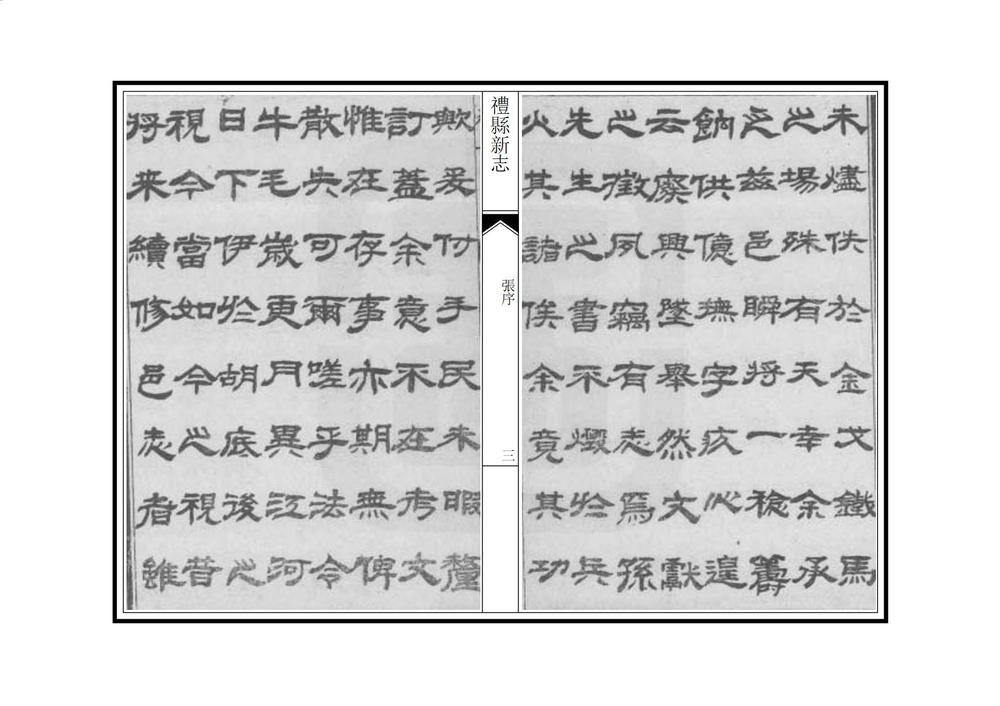 未燼佚於金戈鐵馬
之場殊有天幸余承
乏茲邑瞬將一稔籌
餉供億撫字疚心遑
云廢興墜舉然文獻
之徵夙竊有志焉孫
先生之書不燬於兵
火其諸俟余竟其功
禮縣新志
張序
三
歟爰付手民未暇釐
訂蓋余意不在考文
惟在存事亦期無俾
散失可爾嗟乎法令
牛毛歲更月異江河
日下伊於胡底後之
視今當如今之視昔
將来續修邑志者雖